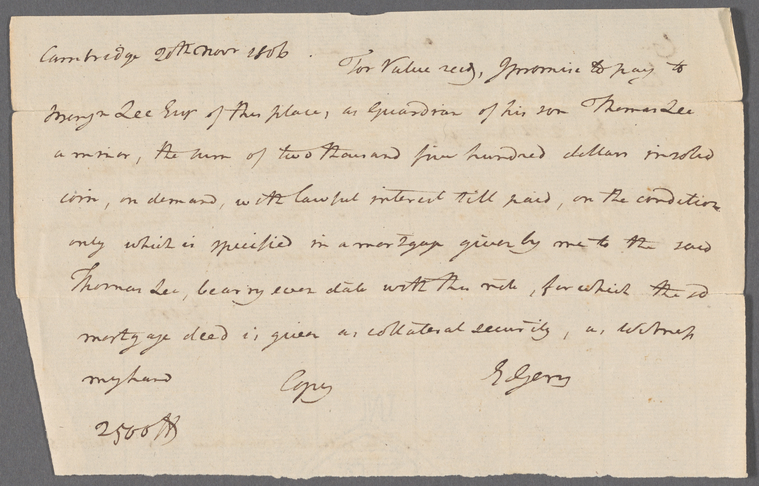 Cambridge 20th Novr 1806. For Value recd, I promise to pay to
Lee Esqr of this place, as Guardian of his son Thomas Lee
a minor, the sum of two thousand five hundred dollars in solid
coin, on demand, with lawful interest till paid, on the condition
only which is specified in a mortgage given by me to the said
Thomas Lee, bearing even date with this note, for which the sd
mortgage deed is given as collateral security, as witness
my hand Copy E Gerry
2500 Ds